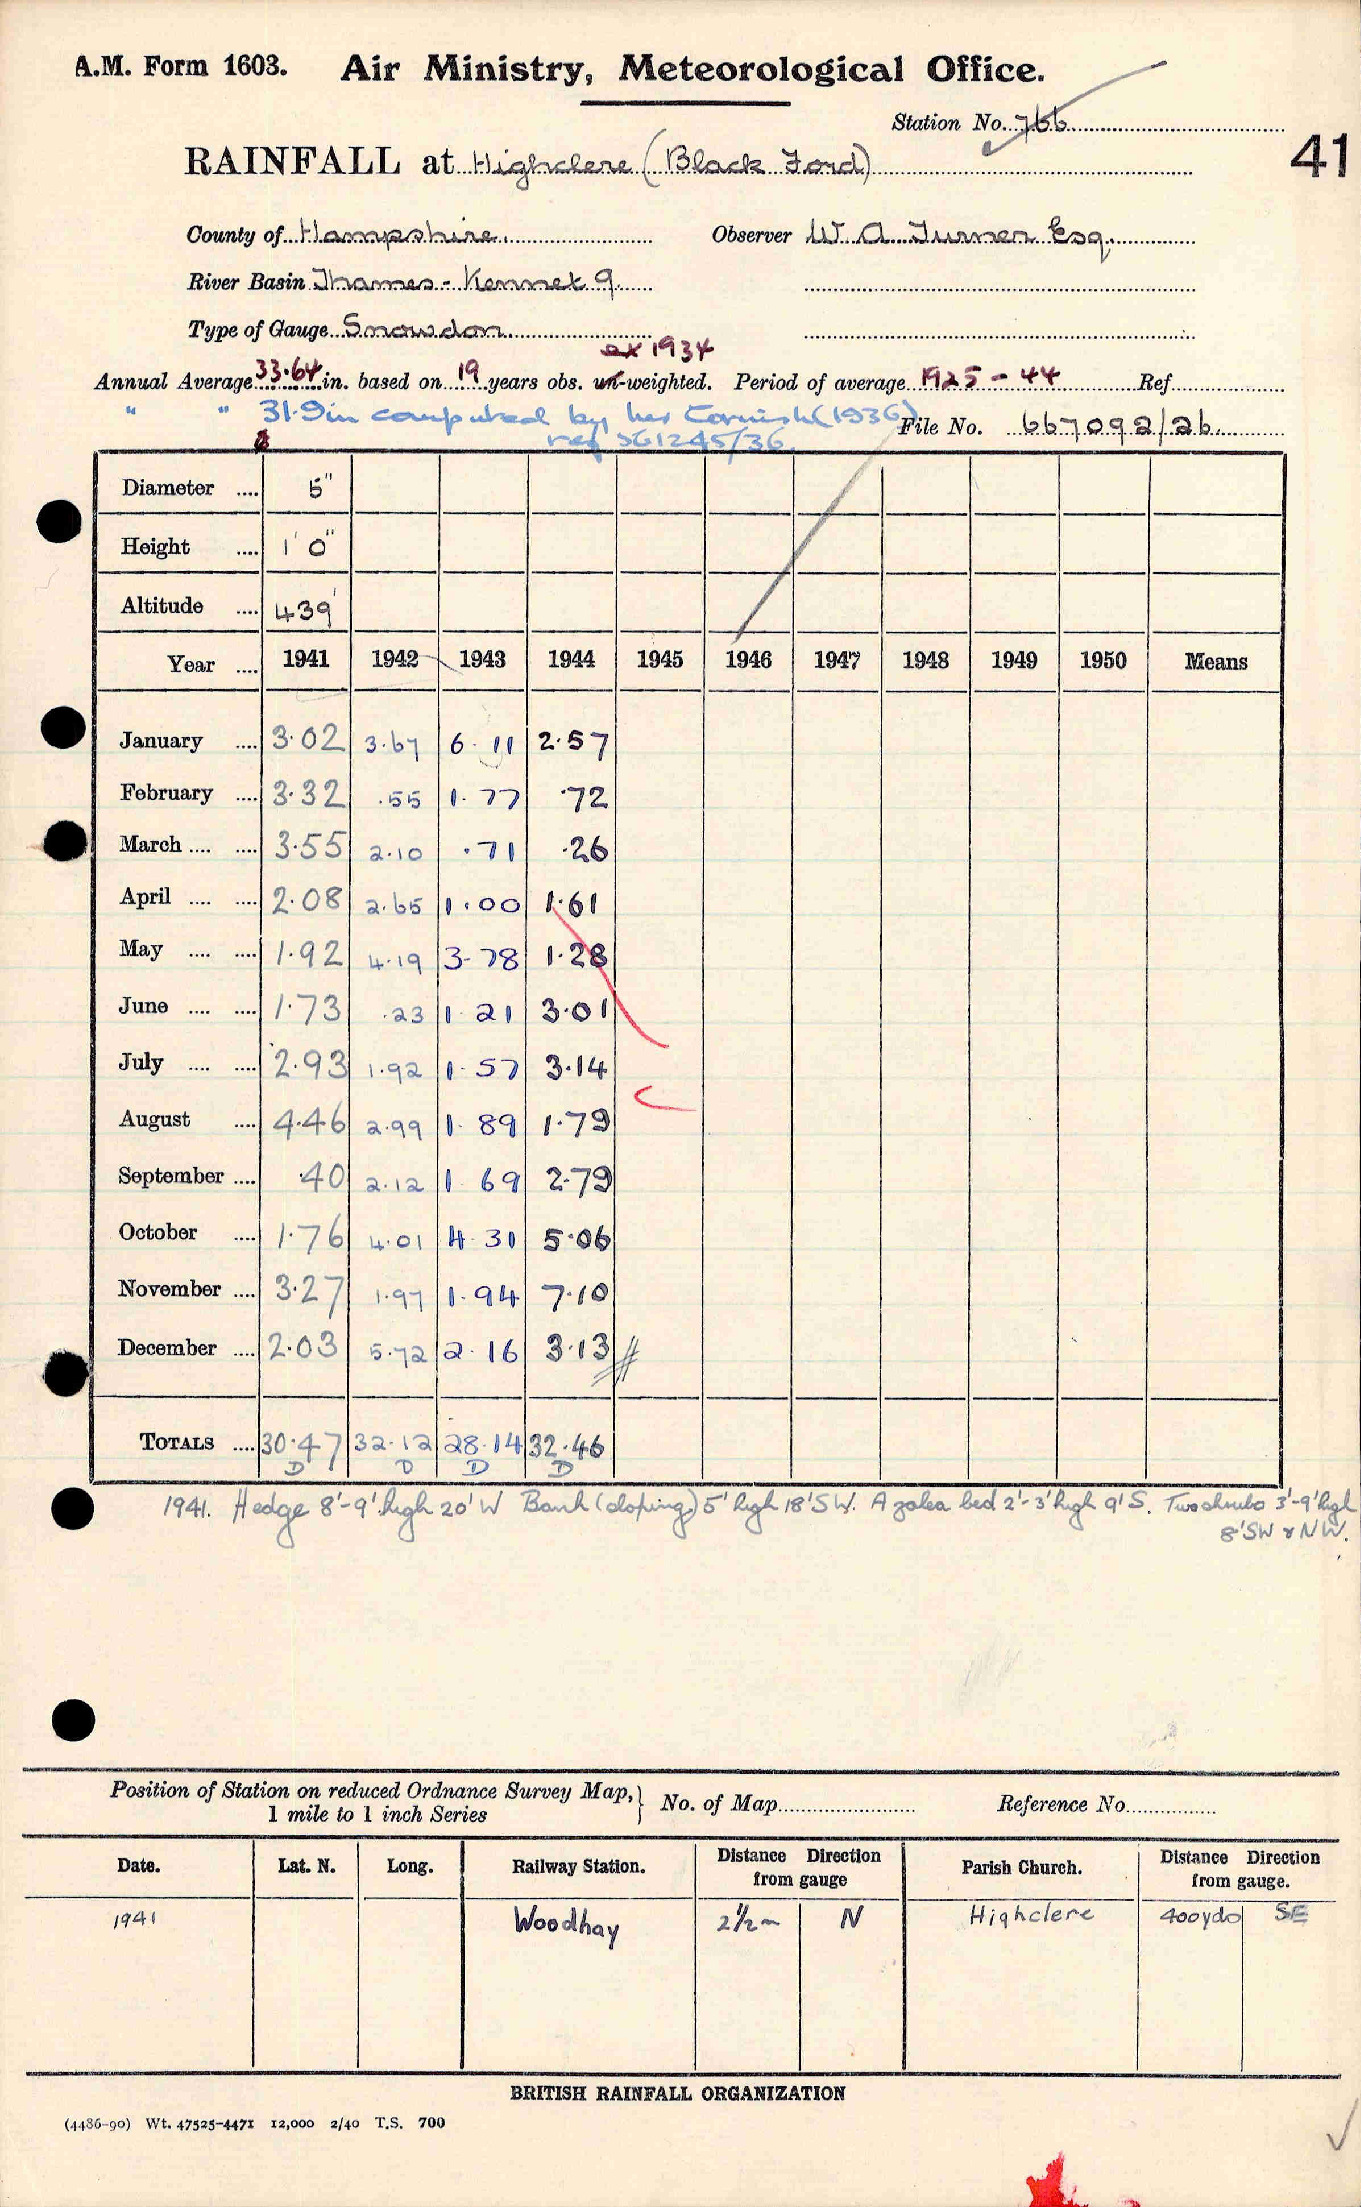 A.M. Form 1603. Air Ministry, Meteorological Office.
Station No. 766
41
RAINFALL at Highclere (Black Ford)
County of Hampshire. Observer W. A. Turner Esq.
River Basin Thames - Kennet 9.
Type of Gauge Snowdon.
ex 1934
Annual Average 33.64 in. based on 19 years obs. un-weighted. Period of average 1925 - 44 Ref
" " 31.9in computed by Cornish (1936)
req 361245/36.
File No. 667092/26.
Diameter .... 5"
Height .... 1' 0"
Altitude .... 439'
Year .... 1941 1942 1943 1944 1945 1946 1947 1948 1949 1950 Means
January .... 3.02 3.67 6.11 2.57
February .... 3.32 .55 1.77 .72
March .... .... 3.55 2.10 .71 .26
April .... .... 2.08 2.65 1.00 1.61
May .... .... 1.92 4.19 3.78 1.28
June .... .... 1.73 .23 1.21 3.01
July .... .... 2.93 1.92 1.57 3.14
August .... 4.46 2.99 1.89 1.79
September .... .40 2.12 1.69 2.79
October .... 1.76 4.01 4.31 5.06
November .... 3.27 1.97 1.94 7.10
December .... 2.03 5.72 2.16 3.13
TOTALS .... 30.47 32.12 28.14 32.46
D D D D
1941. Hedge 8'-9' high 20' W Bank (sloping) 5' high 18' SW. Azalea bed 2'-3' high 9' S. Two shrubs 3'-9' high
8' SW & NW.
Position of Station on reduced Ordnance Survey Map, 1 mile to 1 inch Series } No. of Map Reference No
Date. Lat. N. Long. Railway Station. Distance Direction from gauge Parish Church. Distance Direction from gauge.
1941 Woodhay 2½m N Highclere 400yds SE
BRITISH RAINFALL ORGANIZATION
(4486-90) Wt. 47525-4471 12,000 2/40 T.S. 700